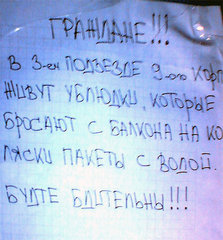 ГРАЖДАНЕ!!!
В 3-ем ПОДЪЕЗДЕ 9-ого КОРП
ЖИВУТ УБЛЮДКИ, КОТОРЫЕ
БРОСАЮТ С БАЛКОНА НА КО
ЛЯСКИ ПАКЕТЫ С ВОДОЙ.
БУДТЕ БДИТЕЛЬНЫ!!!